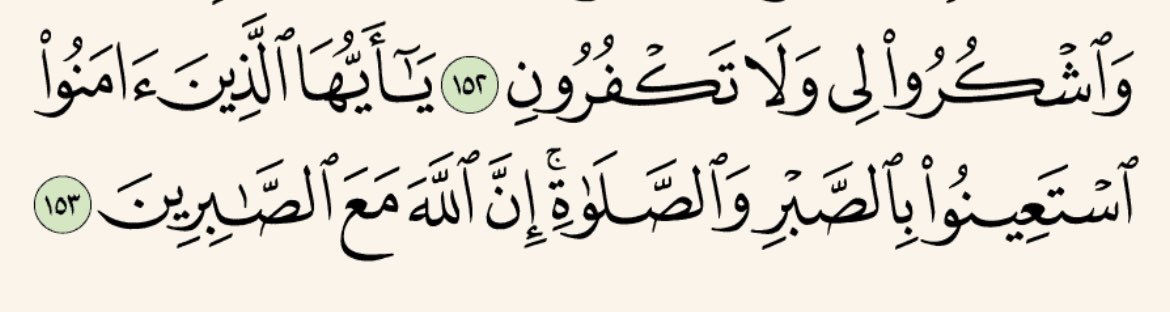 وَٱشْكُرُوا۟ لِى وَلَا تَكْفُرُونِ ١٥٢ يَـٰٓأَيُّهَا ٱلَّذِينَ ءَامَنُوا۟
ٱسْتَعِينُوا۟ بِٱلصَّبْرِ وَٱلصَّلَوٰةِ ۚ إِنَّ ٱللَّهَ مَعَ ٱلصَّـٰبِرِينَ ١٥٣